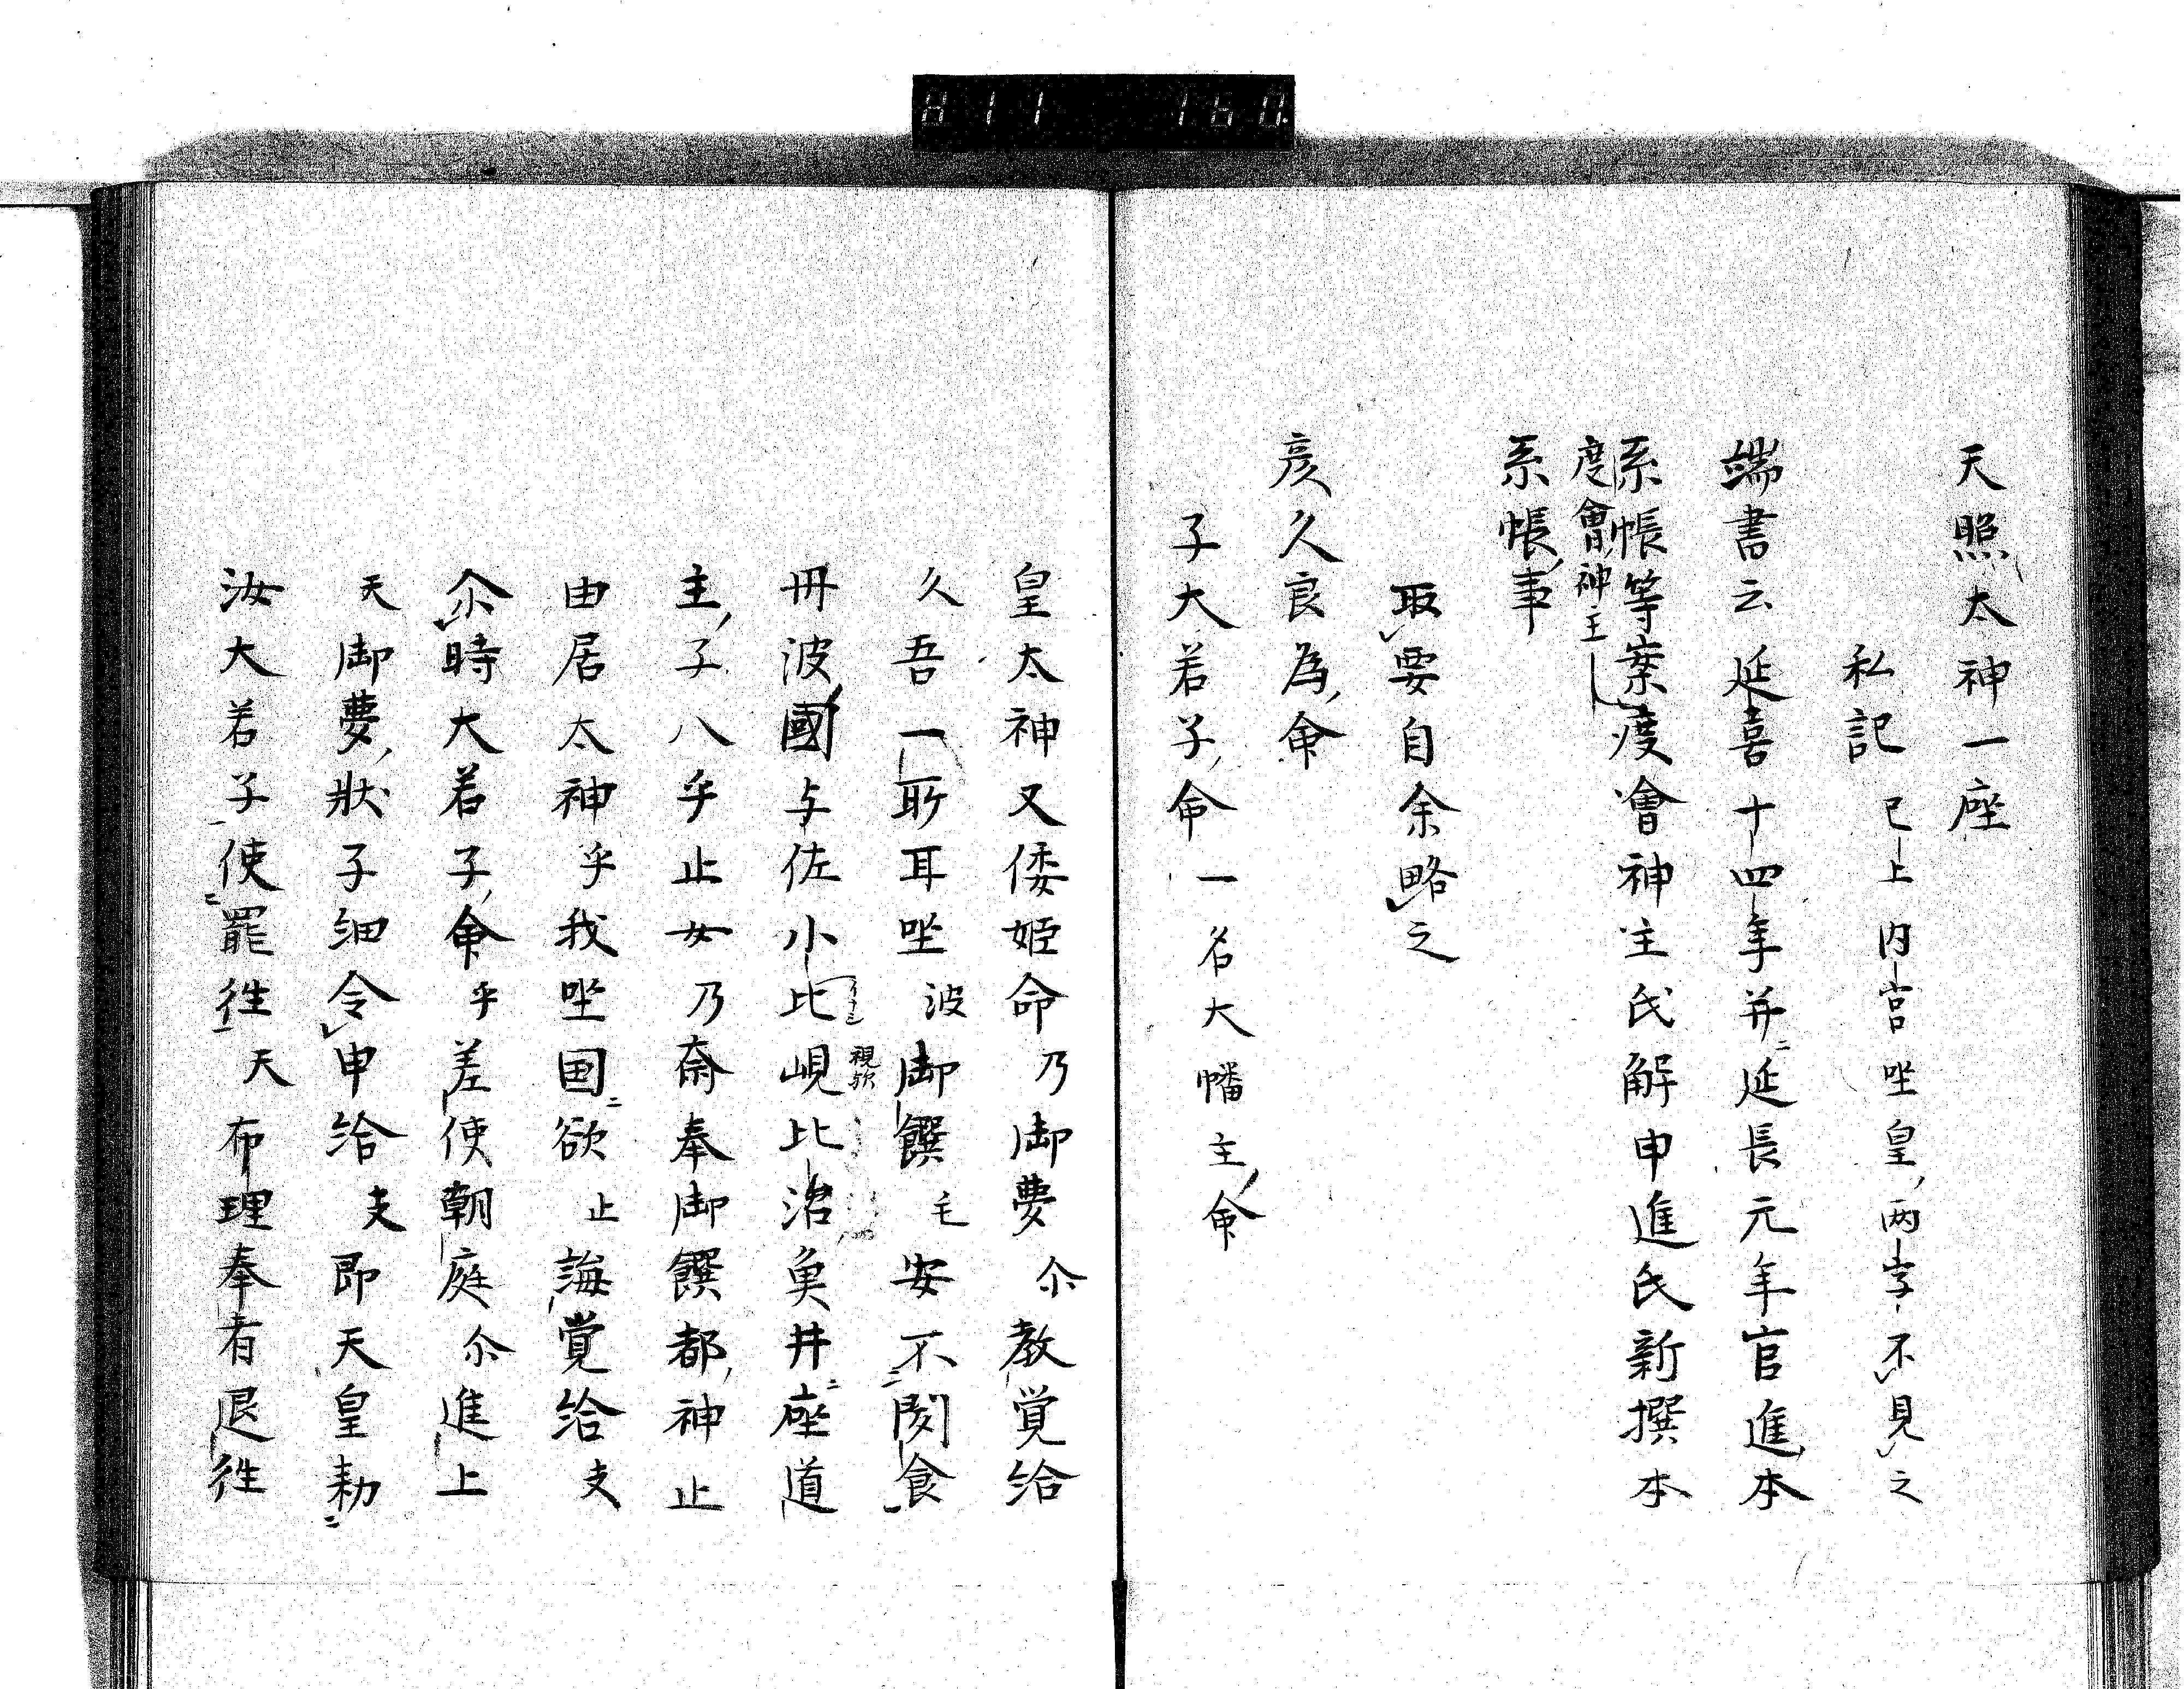 天照太神一座
私記 已上内宮坐皇両字不見之
端書云延喜十四年并延長元年官進本
系帳等案度會神主氏解申進氏新撰本
度會神主
系帳事
取要自余略之
彦久良為命
子大若子命一名大幡主命
皇太神又倭姫命乃御夢尓教覚給
久吾一所耳坐波御饌毛安不聞食
丹波國与佐小比峴比治魚井座道
視歟
主子八乎止女乃奈奉御饌都神止
由居太神乎我坐国欲止誨覚給支
尓時大若子命乎差使朝庭尓進上
天御夢状子細令申給支即天皇勅
汝大若子使罷往天布理奉有退往
811 160